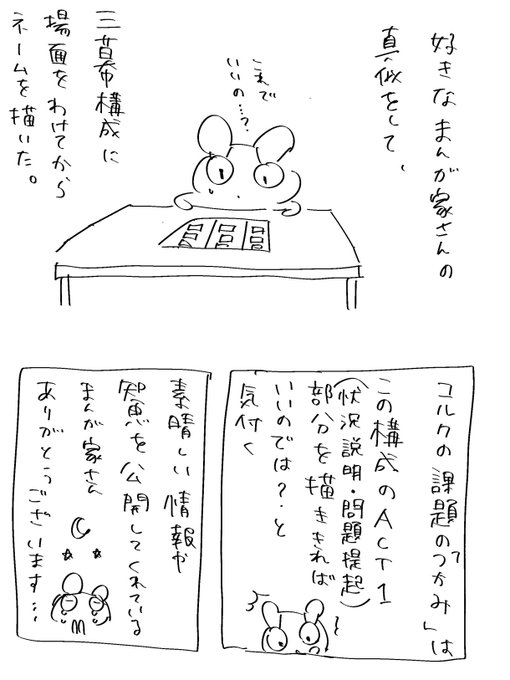 好きなまんが家さんの
真似をして、
これで
いいの…?
三幕構成に
場面をわけてから
ネームを描いた。
コルクの課題の「つかみ」は
この構成のACT1
(状況説明・問題提起)
部分を描ききれば
いいのでは?と
気付く
素晴しい情報や
智恵を公開してくれている
まんが家さん
ありがとうございます…